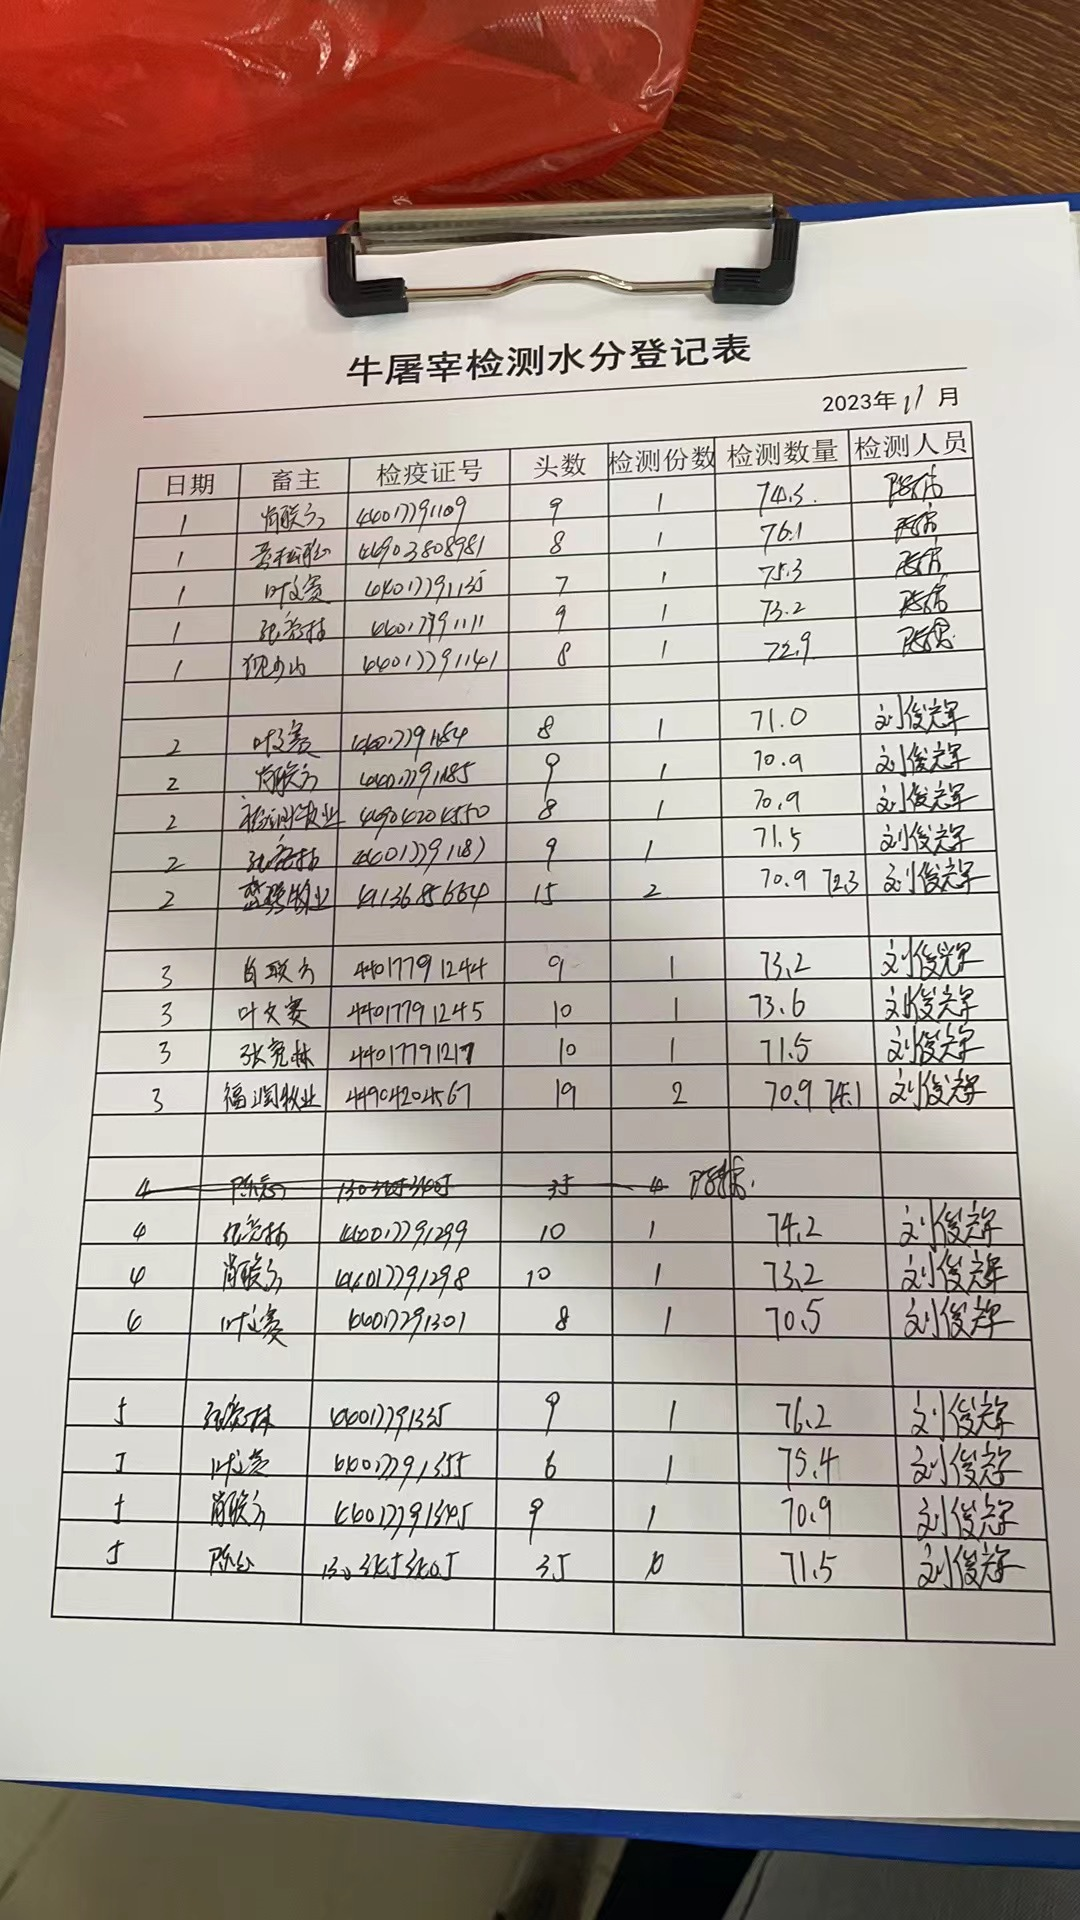 牛屠宰检测水分登记表
2023年11月
日期 畜主 检疫证号 头数 检测份数 检测数量 检测人员
1 肖联方 44017791109 9 1 74.3
1 44903808981 8 1 76.1
1 叶文赛 44017791135 7 1 75.3
1 张宽林 44017791111 9 1 73.2
1 44017791141 8 1 72.9
2 叶文赛 44017791184 8 1 71.0 刘俊辉
2 肖联方 44017791185 9 1 70.9 刘俊辉
2 福润牧业 44904204550 8 1 70.9 刘俊辉
2 张宽林 44017791187 9 1 71.5 刘俊辉
2 牧业 4113685664 15 2 70.9 72.3 刘俊辉
3 肖联方 44017791244 9 1 73.2 刘俊辉
3 叶文赛 44017791245 10 1 73.6 刘俊辉
3 张宽林 44017791217 10 1 71.5 刘俊辉
3 福润牧业 44904204567 19 2 70.9 74.1 刘俊辉
4 35 4
4 张宽林 44017791299 10 1 74.2 刘俊辉
4 肖联方 44017791298 10 1 73.2 刘俊辉
4 叶文赛 44017791301 8 1 70.5 刘俊辉
5 张宽林 44017791335 9 1 76.2 刘俊辉
5 叶文赛 44017791355 6 1 75.4 刘俊辉
5 肖联方 9 1 70.9 刘俊辉
5 35 71.5 刘俊辉